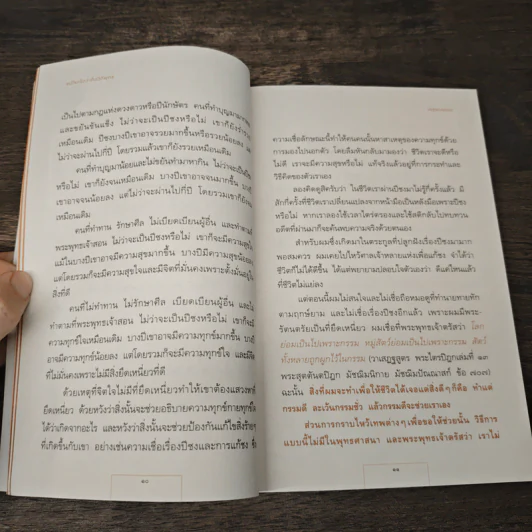 เป็นไปตามกฎแห่งดวงดาวหรือปีนักษัตร คนที่ทำบุญมามาก
และขยันขันแข็ง ไม่ว่าจะเป็นปีชงหรือไม่ เขาก็ยังร่ำรวย
เหมือนเดิม ปีชงบางปีเขาอาจรวยมากขึ้นหรือรวยน้อยลง แต่
ไม่ว่าจะผ่านไปกี่ปี โดยรวมแล้วเขาก็ยังรวยเหมือนเดิม
คนที่ทำบุญมาน้อยและไม่ขยันทำมาหากิน ไม่ว่าจะเป็นปีชง
หรือไม่ เขาก็ยังจนเหมือนเดิม บางปีเขาอาจจนมากขึ้น บางปี
เขาอาจจนน้อยลง แต่ไม่ว่าจะผ่านไปกี่ปี โดยรวมเขาก็ยังจน
เหมือนเดิม
คนที่ทำทาน รักษาศีล ไม่เบียดเบียนผู้อื่น และทำตามที่
พระพุทธเจ้าสอน ไม่ว่าจะเป็นปีชงหรือไม่ เขาก็จะมีความสุข
ไม่แพ้กัน บางปีเขาอาจมีความสุขมากขึ้น บางปีมีความสุขน้อยลง
แต่โดยรวมก็จะมีความสุขใจและมีจิตที่มั่นคงเพราะตั้งมั่นอยู่ใน
สิ่งที่ดี
คนที่ไม่ทำทาน ไม่รักษาศีล เบียดเบียนผู้อื่น และไม่
ทำตามที่พระพุทธเจ้าสอน ไม่ว่าจะเป็นปีชงหรือไม่ เขาก็จะมี
ความทุกข์เหมือนเดิม บางปีเขาอาจมีความทุกข์มากขึ้น บางปี
อาจมีความทุกข์น้อยลง แต่โดยรวมก็จะมีความทุกข์ใจ และมีจิต
ที่ไม่มั่นคงเพราะไม่มีสิ่งยึดเหนี่ยวที่ดี
ด้วยเหตุที่จิตใจไม่มีที่ยึดเหนี่ยวทำให้เขาต้องแสวงหาที่
ยึดเหนี่ยว ด้วยหวังว่าสิ่งนั้นจะช่วยอธิบายความทุกข์กายทุกข์ใจ
ได้ว่าเกิดจากอะไร และหวังว่าสิ่งนั้นจะช่วยป้องกันแก้ไขสิ่งร้ายๆ
ที่เกิดขึ้นกับเขา อย่างเช่นความเชื่อเรื่องปีชงและการแก้ชง ซึ่ง
๒๐
ความเชื่อลักษณะนี้ทำให้คนคนนั้นหาสาเหตุของความทุกข์ด้วย
การมองไปนอกตัว โดยลืมหันกลับมามองว่า ชีวิตเราจะดีหรือ
ไม่ดี เราจะมีความสุขหรือไม่ แท้จริงแล้วอยู่ที่การกระทำและ
วิธีคิดของตัวเราเอง
ลองคิดดูสิครับว่า ในชีวิตเราผ่านปีชงมาไม่รู้กี่ครั้งแล้ว มี
สักกี่ครั้งที่ชีวิตเราเปลี่ยนแปลงจากหน้ามือเป็นหลังมือเพราะปีชง
หรือไม่ หากเราลองใช้เวลาไตร่ตรองและใช้สติกลับไปทบทวน
อดีตที่ผ่านมาก็จะค้นพบความจริงด้วยตนเอง
สำหรับผมซึ่งเกิดมาในตระกูลที่ปลูกฝังเรื่องปีชงมามาก
พอสมควร ผมเคยไปไหว้ศาลเจ้าหลายแห่งเพื่อแก้ชง จำได้ว่า
ชีวิตก็ไม่ได้ดีขึ้น ได้แต่พยายามปลอบใจตัวเองว่า ดีแค่ไหนแล้ว
ที่ชีวิตไม่แย่ลง
แต่ตอนนี้ผมไม่สนใจและไม่เชื่อถือหมอดูที่ทำนายทายทัก
ตามฤกษ์ยาม และไม่เชื่อเรื่องปีชงอีกแล้ว เพราะผมมีพระ
รัตนตรัยเป็นที่ยึดเหนี่ยว ผมเชื่อที่พระพุทธเจ้าตรัสว่า โลก
ย่อมเป็นไปเพราะกรรม หมู่สัตว์ย่อมเป็นไปเพราะกรรม สัตว์
ทั้งหลายถูกผูกไว้ในกรรม (วาเสฏฐสูตร พระไตรปิฎกเล่มที่ ๑๓
พระสุตตันตปิฎก มัชฌิมนิกาย มัชฌิมปัณณาสก์ ข้อ ๗๐๗)
นะฮะ สิ่งที่ผมจะทำเพื่อให้ชีวิตได้เจอแต่สิ่งดีๆ ก็คือ ทำแต่
กรรมดี ละเว้นกรรมชั่ว แล้วกรรมดีจะช่วยเราเอง
ส่วนการกราบไหว้เทพต่างๆ เพื่อขอให้ช่วยนั้น วิธีการ
แบบนี้ไม่มีในพุทธศาสนา และพระพุทธเจ้าตรัสว่า เราไม่
๒๑